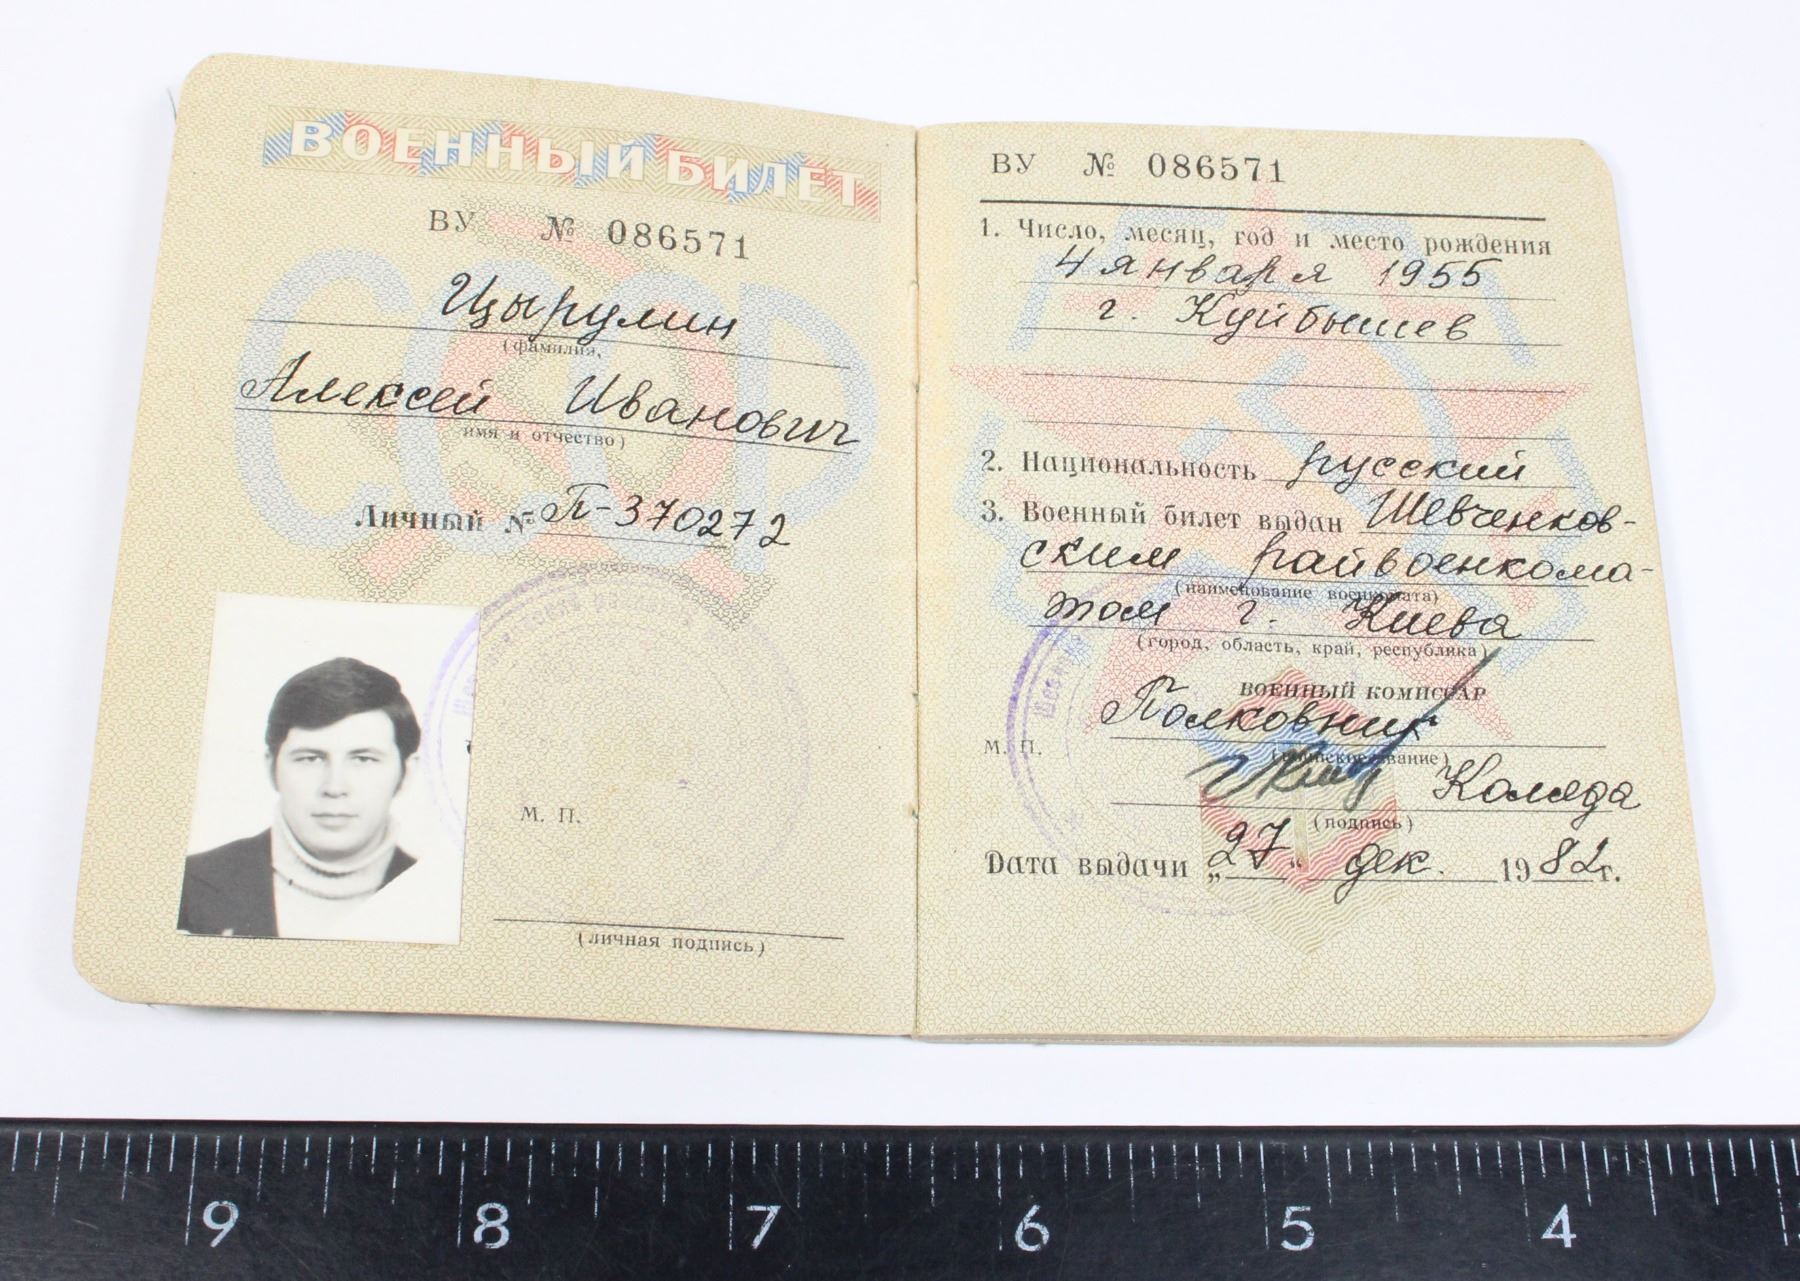 ВОЕННЫЙ БИЛЕТ
ВУ № 086571
Цырулин
(фамилия,
Алексей Иванович
имя и отчество)
Личный № П-370272
М. П.
(личная подпись)
ВУ № 086571
1. Число, месяц, год и место рождения
4 января 1955
г. Куйбышев
2. Национальность русский
3. Военный билет выдан Шевченков-
ским райвоенкома-
(наименование военкомата)
том г. Киева
(город, область, край, республика)
ВОЕННЫЙ КОМИССАР
Полковник
М. П.
(воинское звание)
Коляда
(подпись)
Дата выдачи „27“ дек. 1982г.
9 8 7 6 5 4